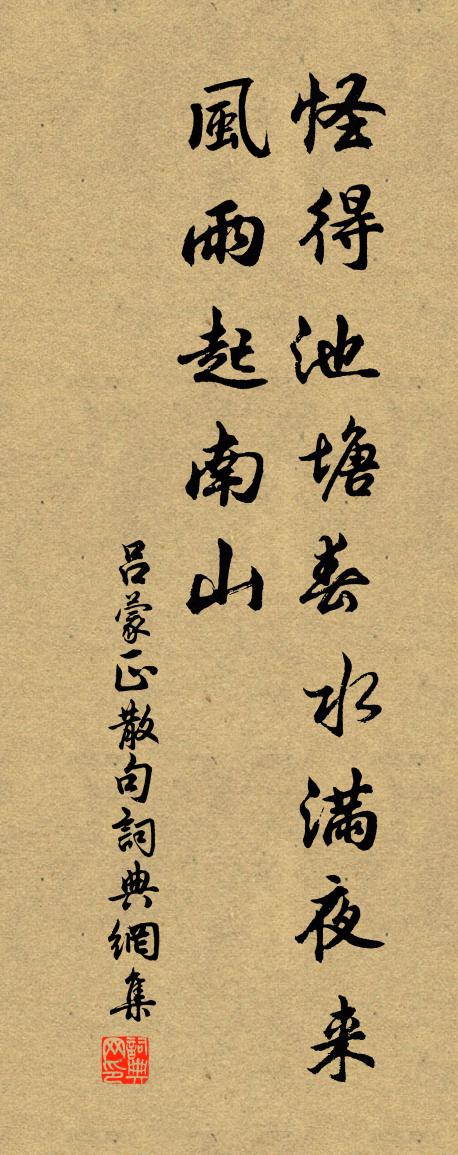 怪得池塘春水满夜来
風雨起南山
吕蒙正散句詞典網集
詞典网印